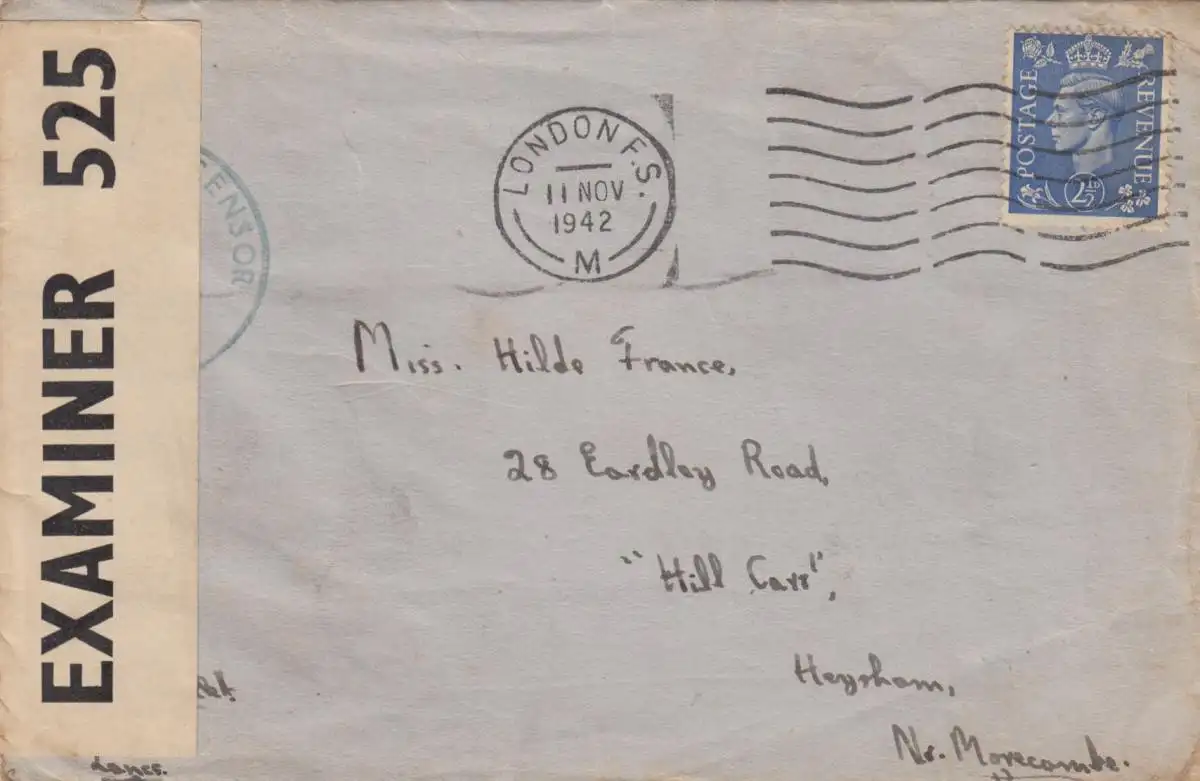 EXAMINER 525
CENSOR
LONDON F.S.
11 NOV
1942
M
POSTAGE
REVENUE
2½D
Miss. Hilde France,
28 Eardley Road,
"Hill Carr",
Heysham,
Nr. Morecambe.
Lancs.